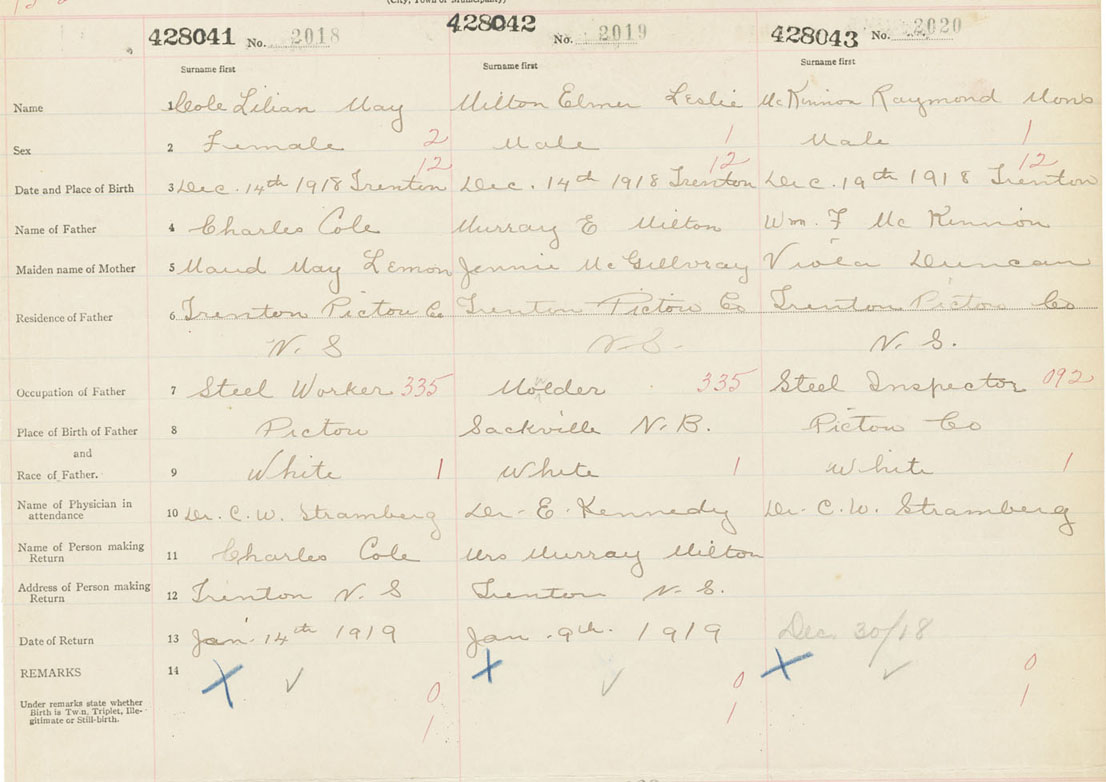 (City, Town or Municipality)
428041 No. 2018 428042 No. 2019 428043 No. 2020
Surname first Surname first Surname first
Name 1 Cole Lilian May Milton Elmer Leslie McKinnon Raymond
Sex 2 Female 2 Male 1 Male 1
12 12 12
Date and Place of Birth 3 Dec. 14th 1918 Trenton Dec. 14th 1918 Trenton Dec. 19th 1918 Trenton
Name of Father 4 Charles Cole Murray E Milton Wm. F McKinnon
Maiden name of Mother 5 Maud May Lemon Jennie McGillvray Viola Duncan
Residence of Father 6 Trenton Pictou Co Trenton Pictou Co Trenton Pictou Co
N. S N. S. N. S.
Occupation of Father 7 Steel Worker 335 Molder 335 Steel Inspector 092
Place of Birth of Father 8 Pictou Sackville N. B. Pictou Co
and
Race of Father. 9 White 1 White 1 White 1
Name of Physician in attendance 10 Dr. C. W. Stramberg Dr. E. Kennedy Dr. C. W. Stramberg
Name of Person making Return 11 Charles Cole Mrs Murray Milton
Address of Person making Return 12 Trenton N. S Trenton N. S.
Date of Return 13 Jan. 14th 1919 Jan. 9th. 1919 Dec. 30/18
REMARKS 14
Under remarks state whether Birth is Twin, Triplet, Ille-
gitimate or Still-birth.
0 0 0
1 1 1